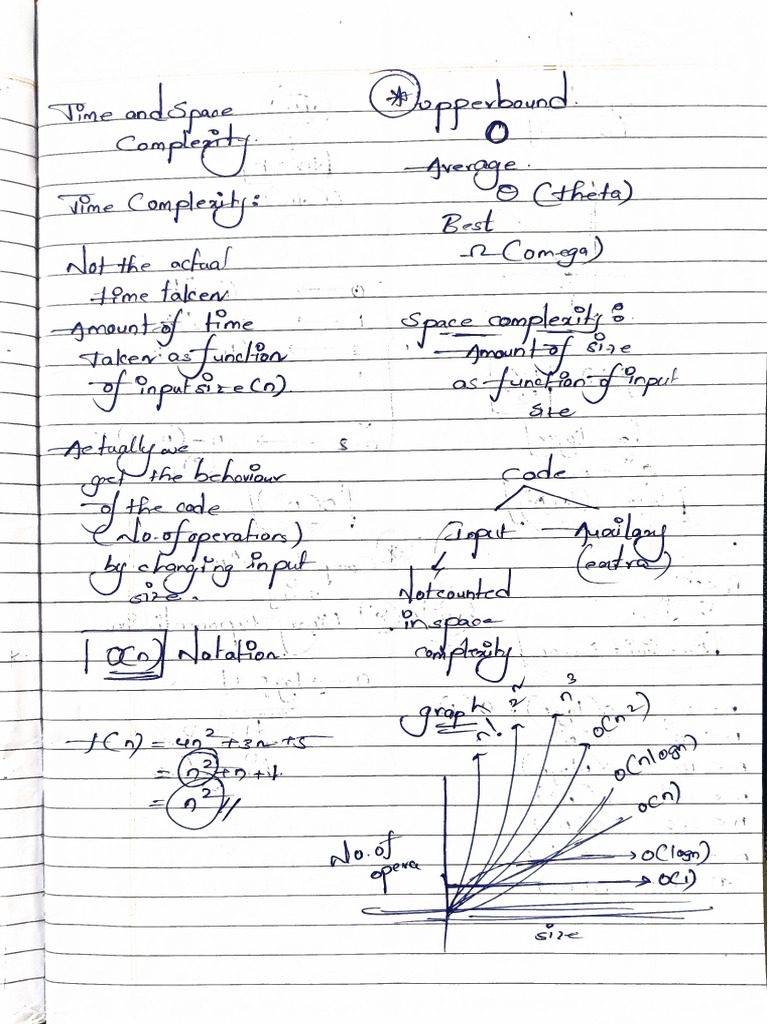 Time and Space
Complexity.
Time Complexity:
Not the actual
time taken
Amount of time
taken as function
of input size (n).
Actually we
get the behaviour
of the code
(No. of operations)
by changing input
size.
O(n) Notation.
f(n) = 4n² + 3n + 5
= n² + n + 1.
= n² //
* upperbound.
O
Average.
Θ (theta)
Best
Ω (omega)
Space complexity:
Amount of size
as function of input
size
s
Code
Input
Auxilary
(extra)
Not counted
in space
complexity.
graph
n!
2ⁿ
n³
O(n²)
O(nlogn)
O(n)
O(logn)
O(1)
No. of
opera
size